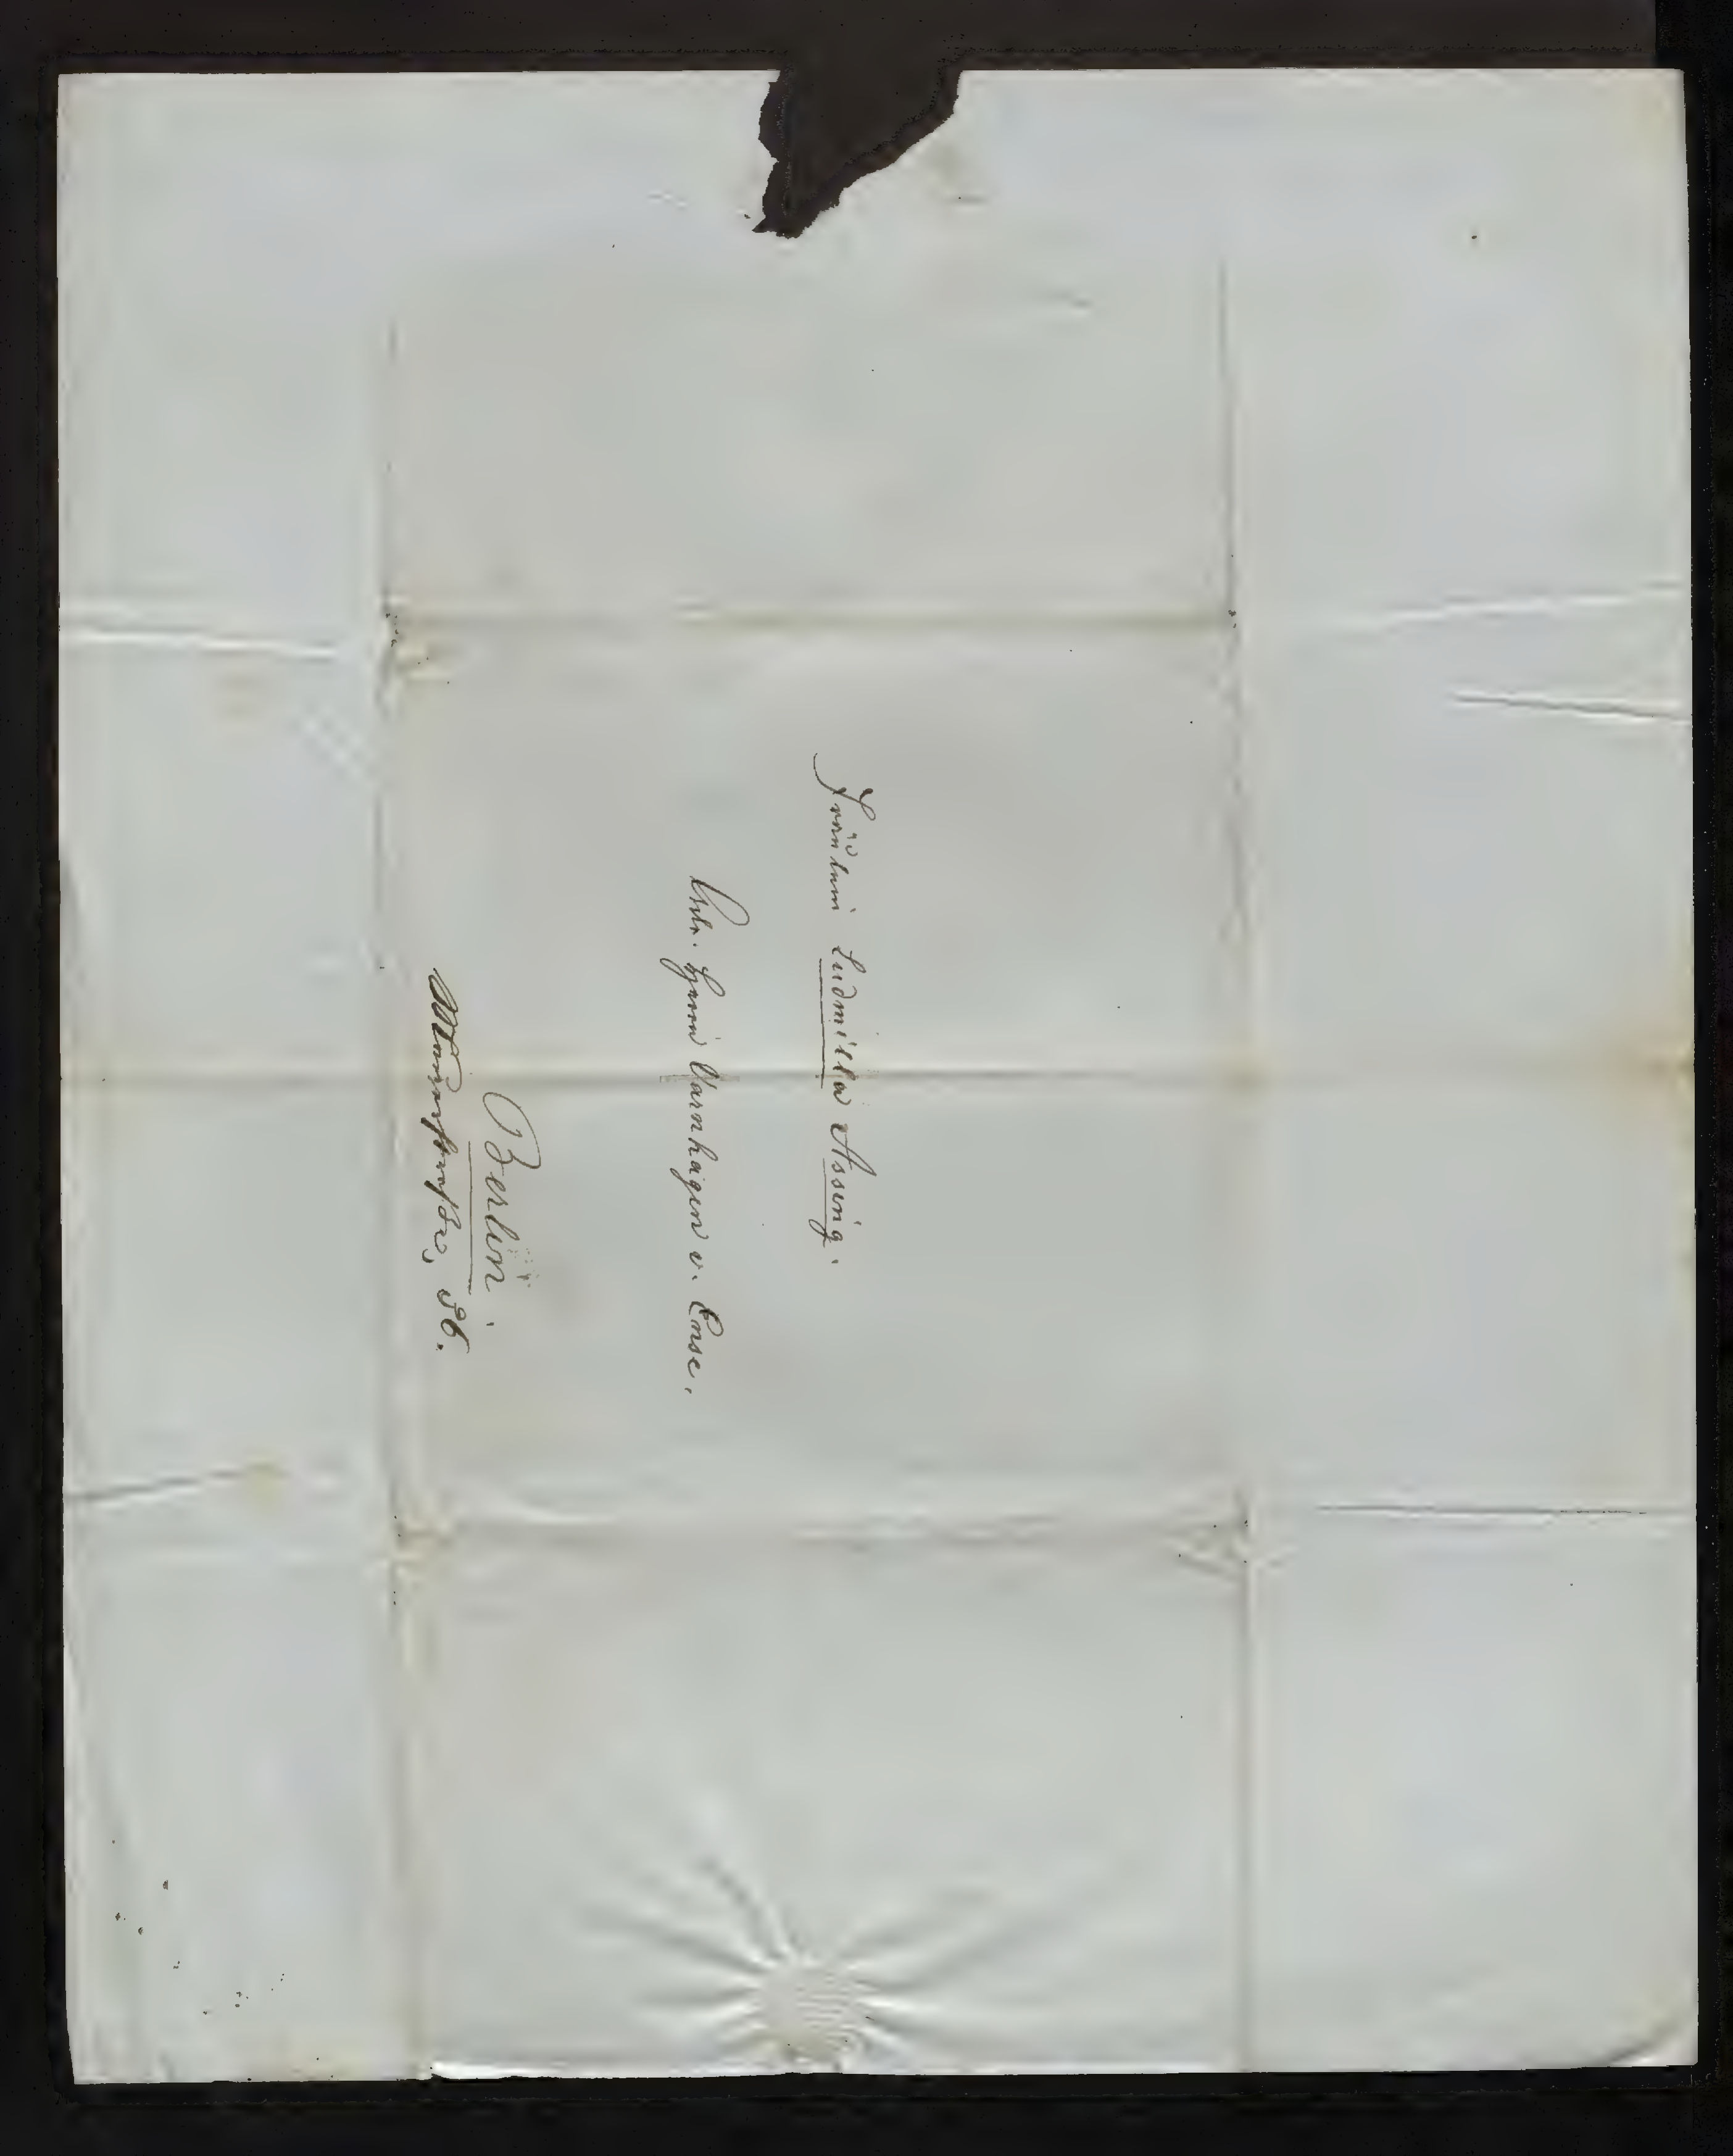 Fräulein Ludmilla Assing.
Adr. Herrn Varnhagen v. Ense.
Berlin.
Mauerstraße, 36.